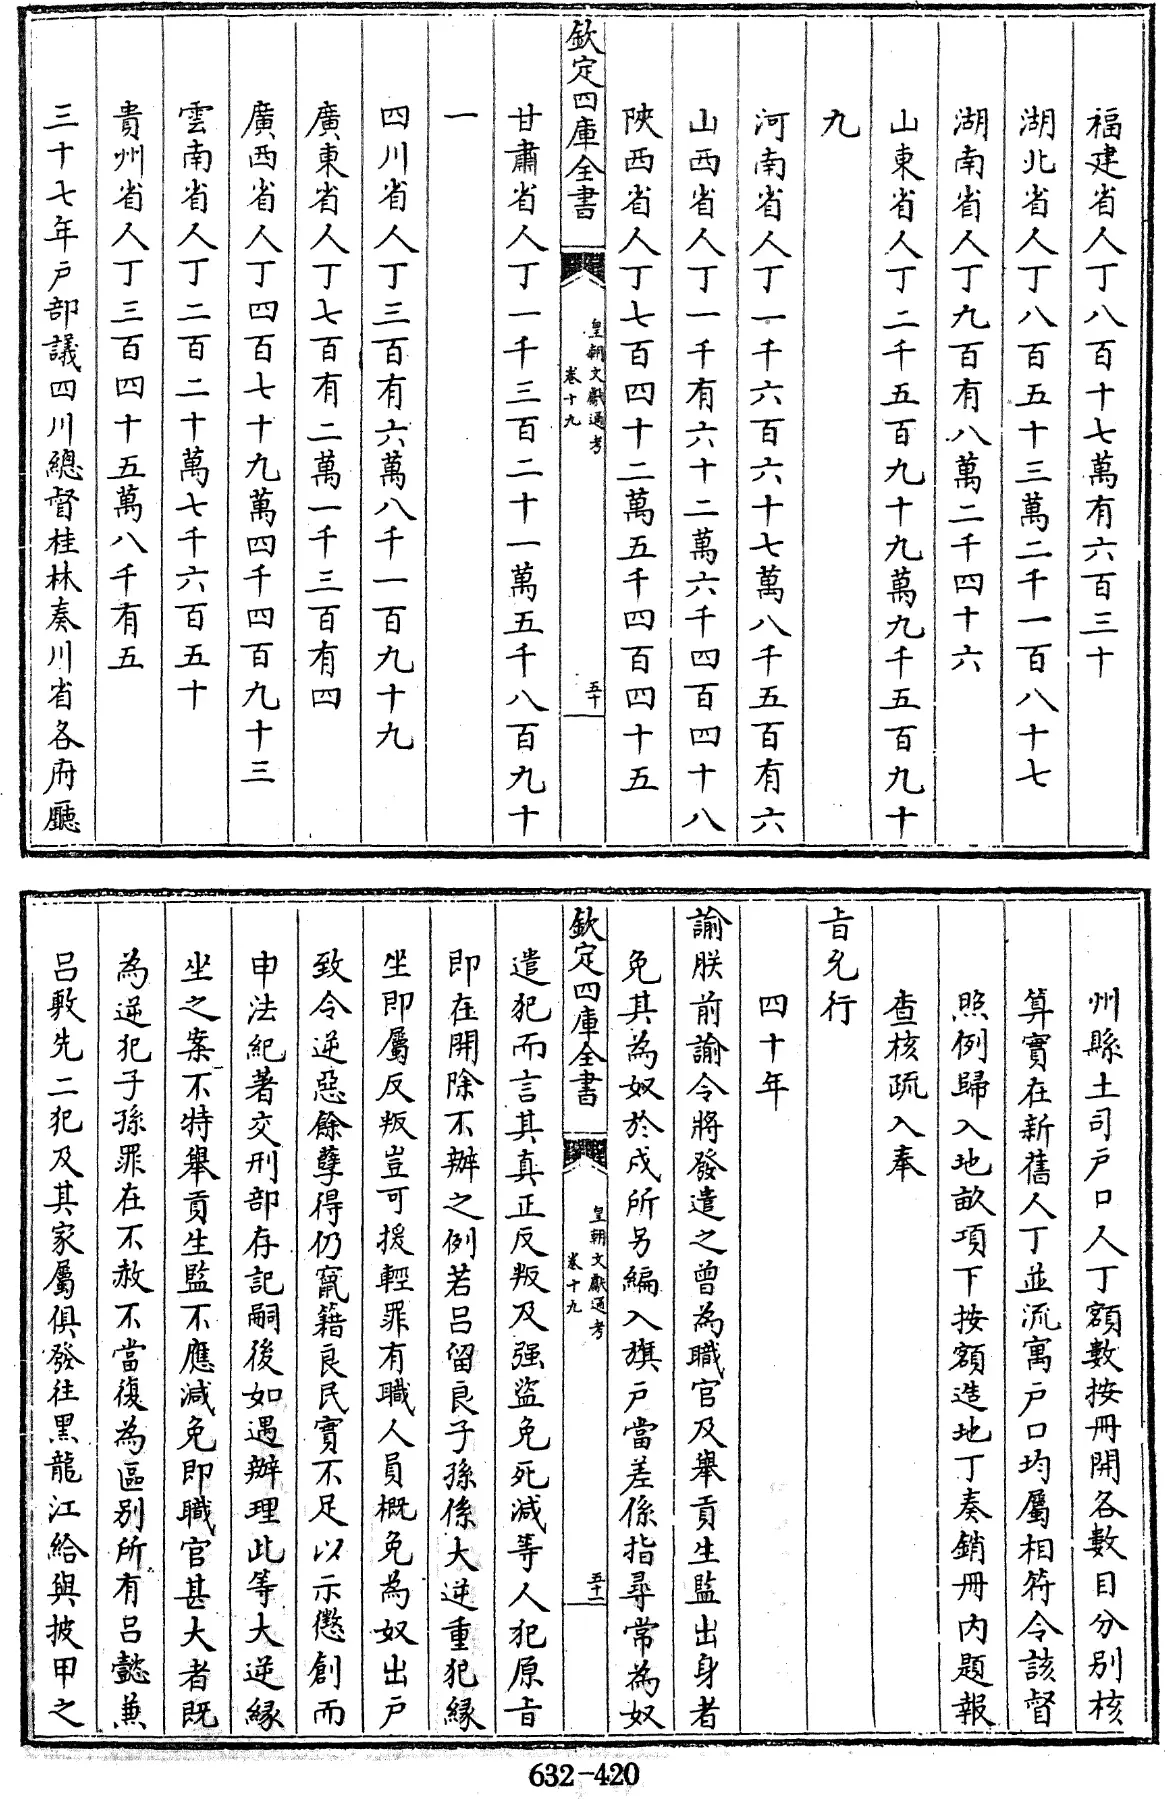 福建省人丁八百十七萬有六百三十
湖北省人丁八百五十三萬二千一百八十七
湖南省人丁九百有八萬二千四十六
山東省人丁二千五百九十九萬九千五百九十
九
河南省人丁一千六百六十七萬八千五百有六
山西省人丁一千有六十二萬六千四百四十八
陝西省人丁七百四十二萬五千四百四十五
欽定四庫全書
皇朝文獻通考
卷十九
五十
甘肅省人丁一千三百二十一萬五千八百九十
一
四川省人丁三百有六萬八千一百九十九
廣東省人丁七百有二萬一千三百有四
廣西省人丁四百七十九萬四千四百九十三
雲南省人丁二百二十萬七千六百五十
貴州省人丁三百四十五萬八千有五
三十七年戸部議四川總督桂林奏川省各府廳
州縣土司戸口人丁額數按冊開各數目分別核
算實在新舊人丁並流寓戸口均屬相符令該督
照例歸入地畝項下按額造地丁奏銷冊内題報
查核疏入奉
㫖允行
四十年
諭朕前諭令將發遣之曾為職官及舉貢生監出身者
免其為奴於戍所另編入旗戸當差係指尋常為奴
欽定四庫全書
皇朝文獻通考
卷十九
五十一
遣犯而言其真正反叛及强盜免死減等人犯原㫖
即在開除不辦之例若吕留良子孫係大逆重犯縁
坐即屬反叛豈可援輕罪有職人員概免為奴出戸
致令逆惡餘孽得仍竄籍良民實不足以示懲創而
申法紀著交刑部存記嗣後如遇辦理此等大逆縁
坐之案不特舉貢生監不應減免即職官甚大者既
為逆犯子孫罪在不赦不當復為區別所有吕懿兼
吕敷先二犯及其家屬俱發往黑龍江給與披甲之
632-420